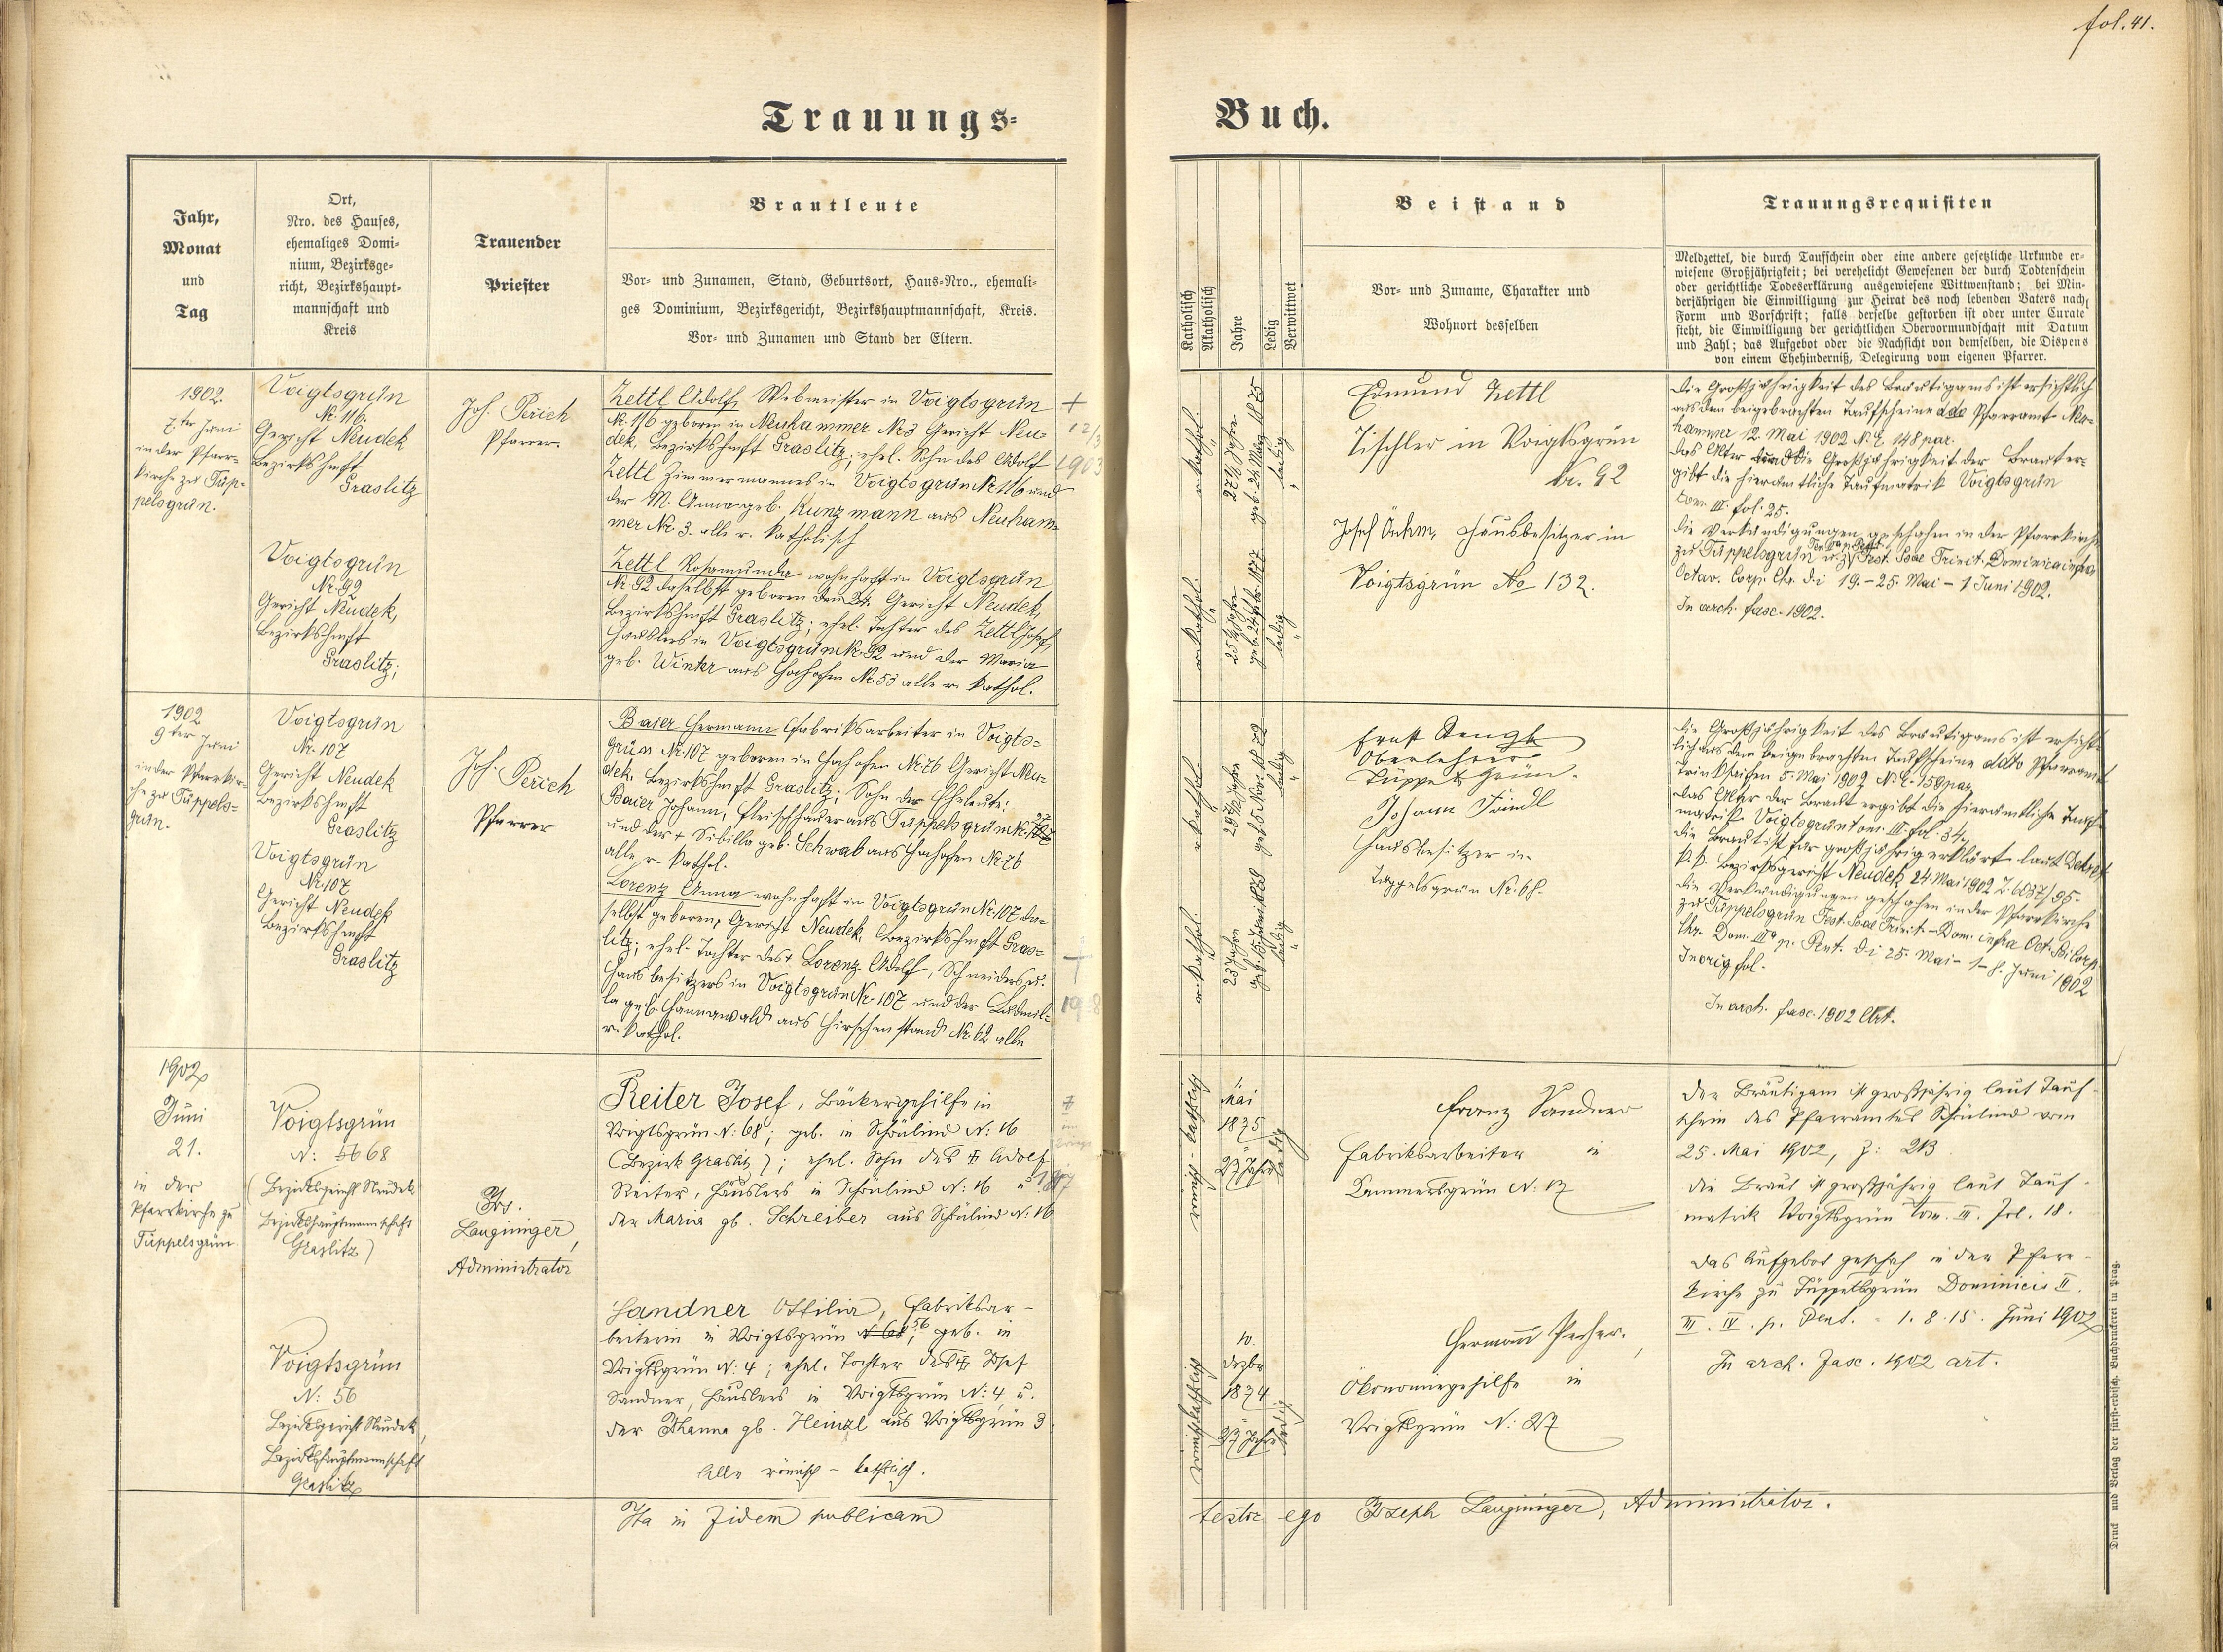 fol. 41.
Trauungs-
Buch.
Jahr,
Monat
und
Tag
Ort,
Nro. des Hauses,
ehemaliges Domi-
nium, Bezirksge-
richt, Bezirkshaupt-
mannschaft und
Kreis
Trauender
Priester
Brautleute
Vor- und Zunamen, Stand, Geburtsort, Haus-Nro., ehemali-
ges Dominium, Bezirksgericht, Bezirkshauptmannschaft, Kreis.
Vor- und Zunamen und Stand der Eltern.
Katholisch
Akatholisch
Jahre
Ledig
Verwittwet
Beistand
Vor- und Zuname, Charakter und
Wohnort desselben
Trauungsrequisiten
Meldzettel, die durch Taufschein oder eine andere gesetzliche Urkunde er-
wiesene Großjährigkeit; bei verehelicht Gewesenen der durch Todtenschein
oder gerichtliche Todeserklärung ausgewiesene Wittwenstand; bei Min-
derjährigen die Einwilligung zur Heirat des noch lebenden Vaters nach
Form und Vorschrift; falls derselbe gestorben ist oder unter Curate
steht, die Einwilligung der gerichtlichen Obervormundschaft mit Datum
und Zahl; das Aufgebot oder die Nachsicht von demselben, die Dispens
von einem Ehehinderniß, Delegirung vom eigenen Pfarrer.
1902.
7.ter Juni
in der Pfarr-
kirche zu Tüp-
pelsgrün.
Voigtsgrün
Nr. 116.
Gericht Neudek
Bezirkshmft
Graslitz
Voigtsgrün
Nr. 92
Gericht Neudek,
Bezirkshmft
Graslitz;
Joh. Perich
Pfarrer.
Zettl Adolf, Webmeister in Voigtsgrün
Nr. 116 geboren in Neuhammer Nr 3 Gericht Neu-
dek, Bezirkshmft Graslitz; ehel. Sohn des Adolf
Zettl Zimmermannes in Voigtsgrün Nr 116 und
der M. Anna geb. Kunzmann aus Neuham-
mer Nr. 3. alle r. katholisch
+
12/3
1903
Zettl Rosamunda wohnhaft in Voigtsgrün
Nr 92 daselbst geboren den 24. Gericht Neudek,
Bezirkshmft Graslitz; ehel. Tochter des Zettl Josef,
Häuslers in Voigtsgrün Nr. 92 und der Maria
geb. Winter aus Hochofen Nr. 53 alle r. kathol.
r. kathol.
27 Jahre
geb. 24. März 1875
ledig
r. kathol.
25 Jahre
ledig
Edmund Zettl
Tischler in Voigtsgrün
Nr. 92
Josef Hausbesitzer in
Voigtsgrün No 132.
Die Großjährigkeit des Bräutigams ist ersichtlich
aus dem beigebrachten Taufscheine ddo Pfarramt Neu-
hammer 12. Mai 1902 N. E. 148 par.
Das Alter und die Großjährigkeit der Braut er-
gibt die hieramtliche Taufmatrik Voigtsgrün
tom. III. fol. 25.
Die Verkündigungen geschahen in der Pfarrkirche
zu Tüppelsgrün Fest. Ssae Trinit. Dominica infra
Octav. Corp. Chr. di 19. - 25. Mai - 1 Juni 1902.
In arch. fasc. 1902.
1902
9ter Juni
in der Pfarrkir-
che zu Tüppels-
grün.
Voigtsgrün
Nr. 107
Gericht Neudek
Bezirkshmft
Graslitz
Voigtsgrün
Nr. 107
Gericht Neudek
Bezirkshmft
Graslitz
Joh. Perich
Pfarrer
Baier Hermann Fabriksarbeiter in Voigts-
grün Nr. 107 geboren in Hochofen Nr. 76 Gericht Neu-
dek, Bezirkshmft Graslitz; Sohn der Eheleute:
Baier Johann, Fleischhauer aus Tüppelsgrün Nr.
und der + Sibilla geb. Schwab aus Hochofen Nr. 76
alle r. kathol.
Lorenz Anna wohnhaft in Voigtsgrün Nr. 107 da-
selbst geboren, Gericht Neudek, Bezirkshmft Gras-
litz; ehel. Tochter des + Lorenz Adolf, Schneiders u.
Hausbesitzers in Voigtsgrün Nr. 107 und der Ludmil-
la geb. Hannawald aus Hirschenstand Nr. 62 alle
r. kathol.
r. kathol.
29 Jahre
geb. 5 Nov. 1872
ledig
r. kathol.
23 Jahre
ledig
Ernst Lengk
Oberlehrer
Tüppelsgrün.
Johann
Hausbesitzer in
Tüppelsgrün Nr. 68.
Die Großjährigkeit des Bräutigams ist ersicht-
lich aus dem beigebrachten Taufscheine ddto Pfarramt
Trinkseifen 5. Mai 1902 N. E. 158 par.
Das Alter der Braut ergibt die hieramtliche Tauf-
matrik. Voigtsgrün tom. III. fol. 34.
Die Braut ist für großjährig erklärt laut Dekret
k. k. Bezirksgericht Neudek, 24. Mai 1902
Die Verkündigungen geschahen in der Pfarrkirche
zu Tüppelsgrün Fest. Ssae Trinit. - Dom. infra Oct. Corp.
Chr. Dom. III. p. Pent. di 25. Mai - 1 - 8. Juni 1902
In orig. fol.
In arch. fasc. 1902 Art.
1902
Juni
21.
in der
Pfarrkirche zu
Tüppelsgrün
Voigtsgrün
N: 68
(Bezirksgericht Neudek
Bezirkshauptmannschaft
Graslitz)
Voigtsgrün
N: 56
Bezirksgericht Neudek,
Bezirkshauptmannschaft
Graslitz
Jos.
Langinger,
Administrator
Reiter Josef, Bäckergehilfe in
Voigtsgrün N: 68; geb. in Schönlind N: 16
(Bezirk Graslitz); ehel. Sohn des + Adolf
Reiter, Häuslers in Schönlind N: 16 u.
der Maria gb. Schreiber aus Schönlind N: 16
Sandner Ottilia, Fabriksar-
beiterin in Voigtsgrün N 68; 56 geb. in
Voigtsgrün N: 4; ehel. Tochter des + Josef
Sandner, Häuslers in Voigtsgrün N: 4, u.
der Thanna gb. Heinzl aus Voigtsgrün 3.
Alle römisch-katholisch.
römisch-katholisch
Mai
1875
27 Jahre
ledig
römischkatholisch
10.
Dezbr
1874
27 Jahre
ledig
Franz Sandner
Fabriksarbeiter in
Kammersgrün N: 17
Hermann
Ökonomiegehilfe in
Voigtsgrün N: 27
Der Bräutigam ist großjährig laut Tauf-
schein des Pfarramtes Schönlind vom
25. Mai 1902, Z: 213
Die Braut ist großjährig laut Tauf-
matrik Voigtsgrün tom. III. fol. 18.
Das Aufgebot geschah in der Pfarr-
kirche zu Tüppelsgrün Dominicis II.
III. IV. p. Pent. 1. 8. 15. Juni 1902
In arch. Fasc. 1902 art.
Ita in fidem publicam
testor ego Joseph Langinger, Administrator.
Druck und Verlag der fürst-erzbisch. Buchdruckerei in Prag.